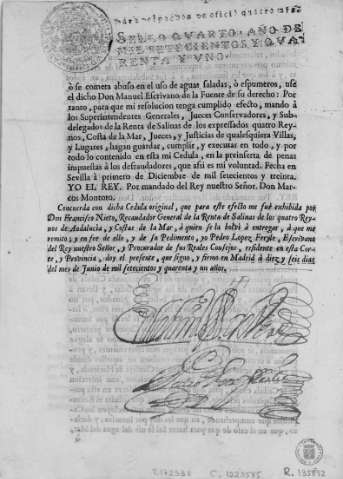 para despachos de oficio quatro mrs.
SELLO QUARTO, AÑO DE
MIL SETECIENTOS Y QUA-
RENTA Y UNO.
ò se cometa abuso en el uso de aguas saladas, ò espumeros, use
el dicho Don Manuel Escrivano de la Fuente de su derecho: Por
tanto, para que mi resolucion tenga cumplido efecto, mando à
los Superintendentes Generales, Jueces Conservadores, y Sub-
delegados de la Renta de Salinas de los expressados quatro Rey-
nos, Costa de la Mar, Jueces, y Justicias de qualesquiera Villas,
y Lugares, hagan guardar, cumplir, y executar en todo, y por
todo lo contenido en esta mi Cedula, en la preinserta de penas
impuestas à los defraudadores, que assi es mi voluntad. Fecha en
Sevilla à primero de Diciembre de mil setecientos y treinta.
YO EL REY. Por mandado del Rey nuestro Señor. Don Mar-
cos Montoto.
Concuerda con dicha Cedula original, que para este efecto me fuè exhibida por
Don Francisco Nieto, Recaudador General de la Renta de Salinas de los quatro Rey-
nos de Andalucia, y Costas de la Mar, à quien se la bolvì à entregar, à que me
remito; y en fee de ello, y de su Pedimento, yo Pedro Lopez Freyle, Escrivano
del Rey nuestro Señor, y Procurador de sus Reales Consejos, residente en esta Cor-
te, y Provincia, doy el presente, que signo, y firmo en Madrid à diez y seis dias
del mes de Junio de mil setecientos y quarenta y un años.
R. 135832